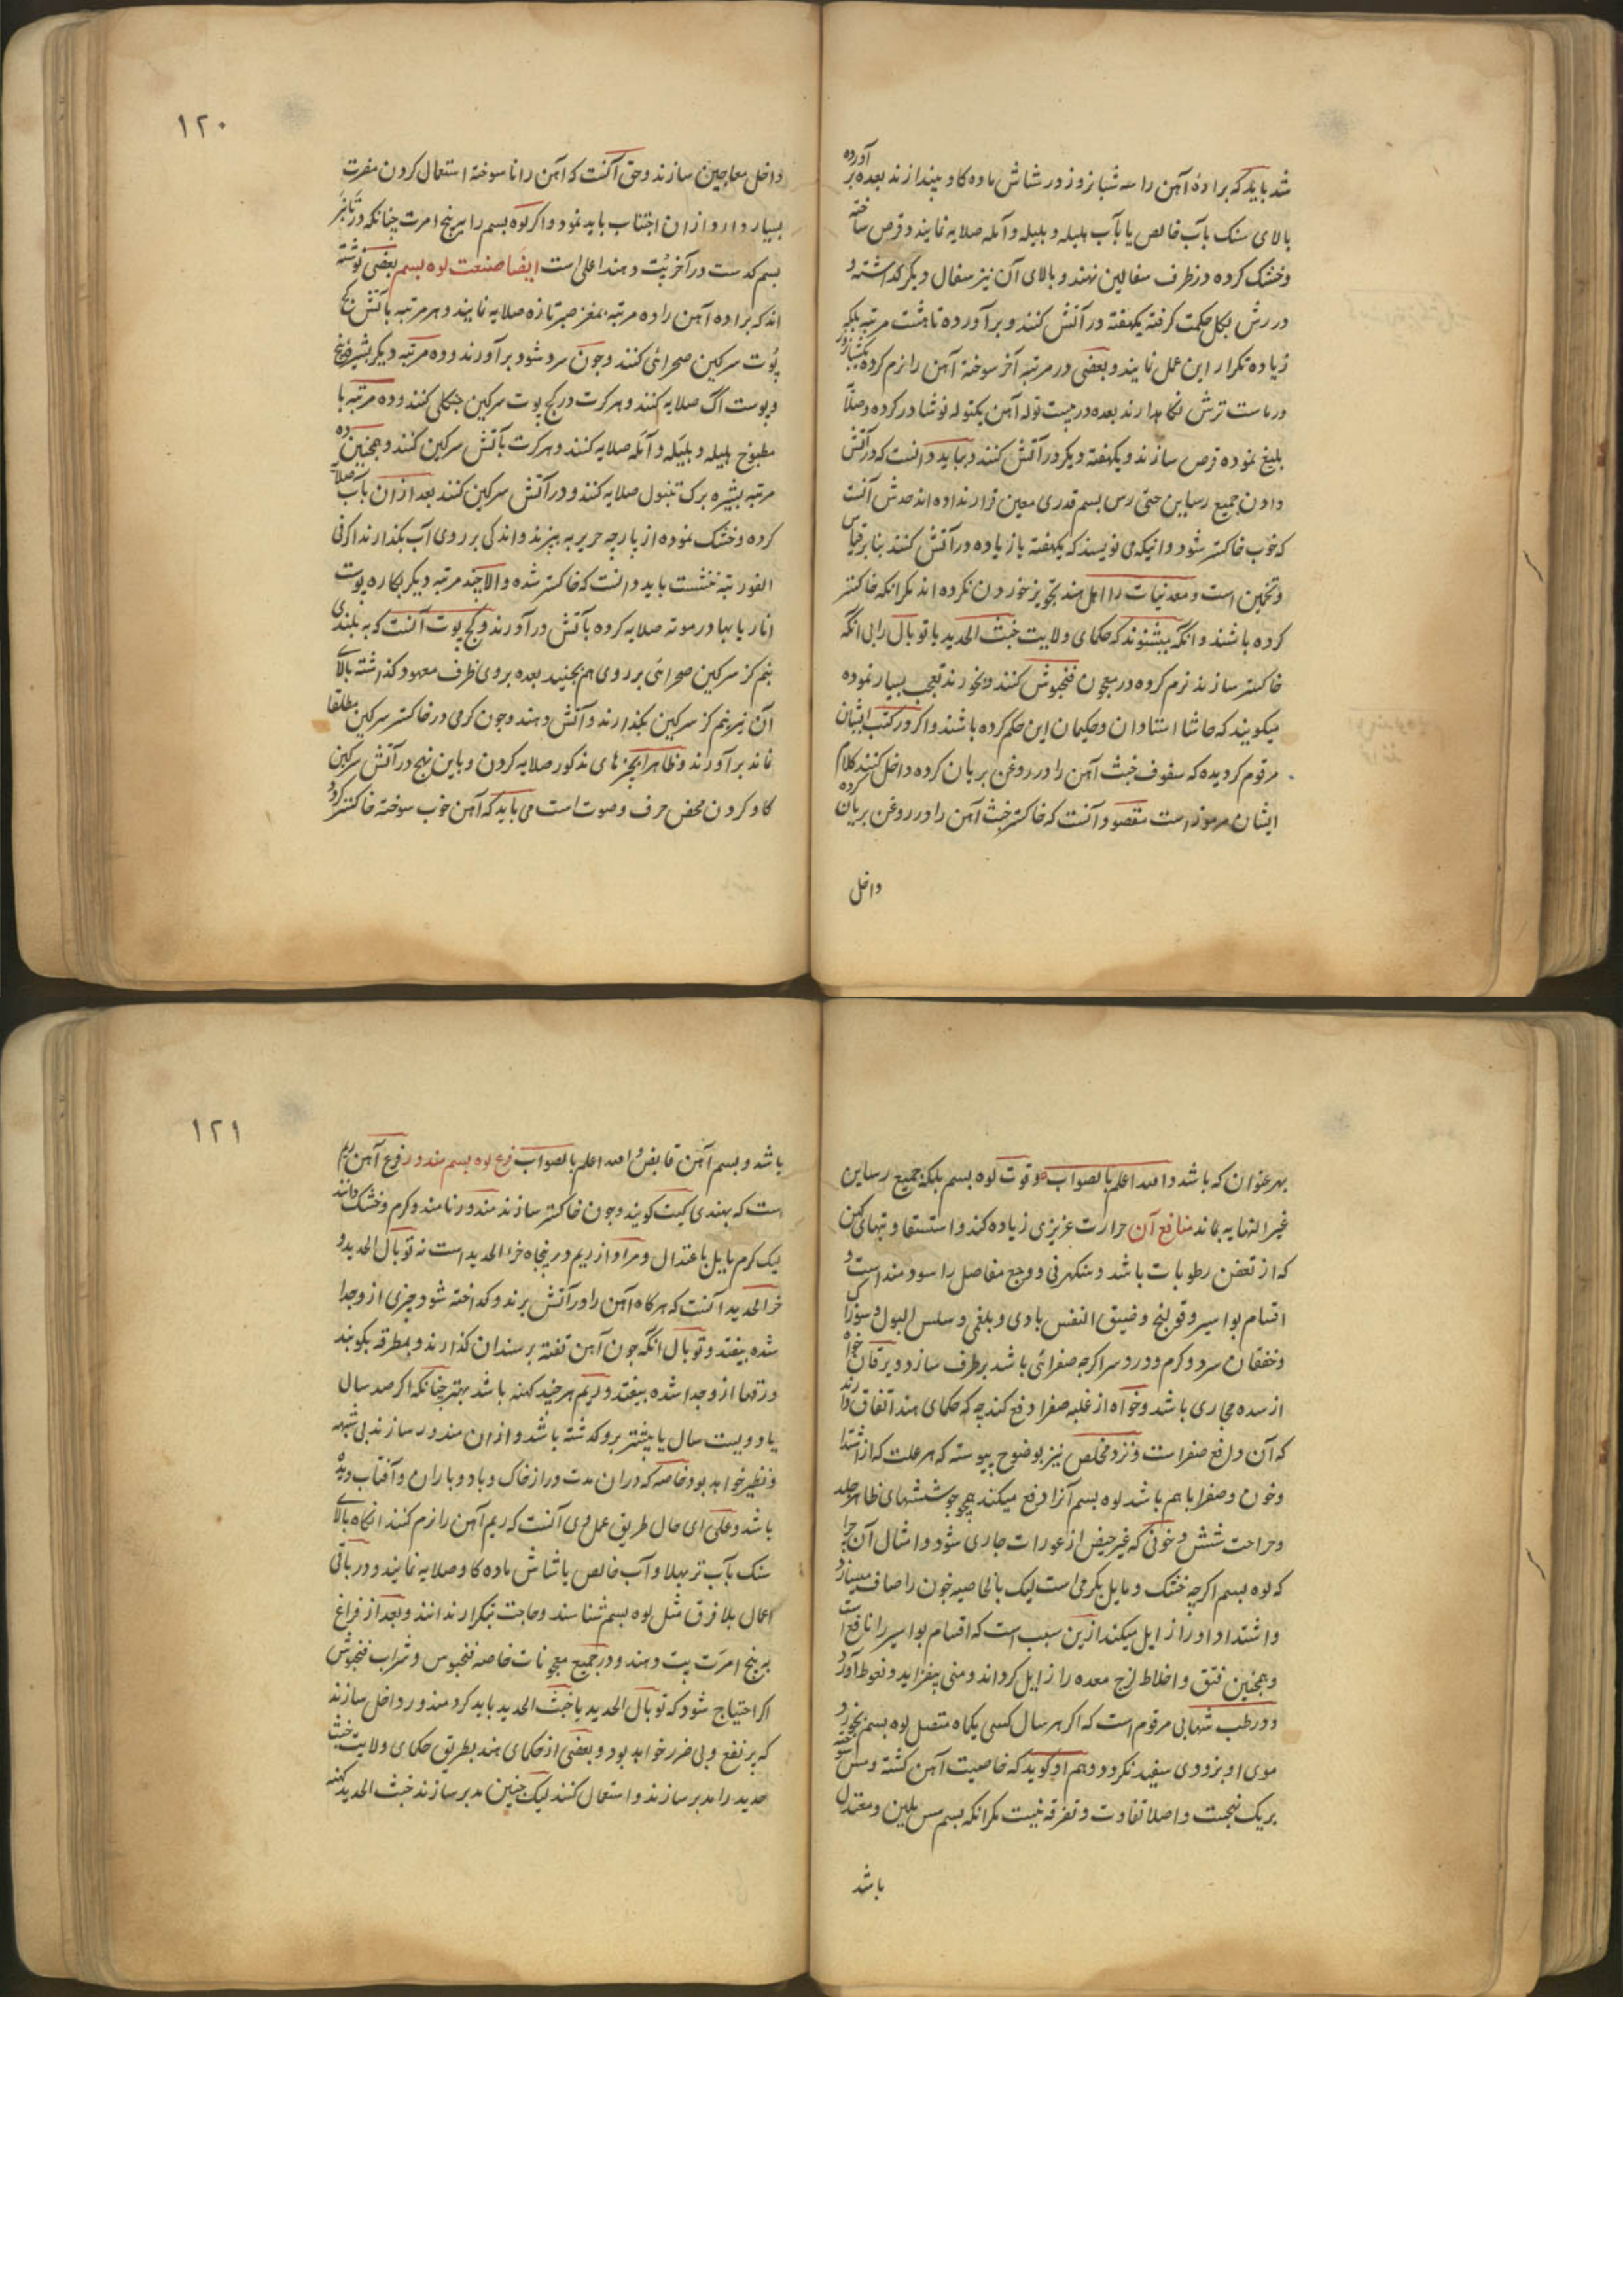 شد باید که برادهٔ آهن را سه شبانروز در شاش ماده کاو بیندازند بعده بر آورده
بالای سنک بآب خالص یا بآب هلیله و بلیله و آمله صلایه نمایند و قرص ساخته
و خشک کرده در ظرف سفالین نهند و بالای آن نیز سفال دیگر کذاشته و
درزش بکل حکمت کرفته یکهفته در آتش کنند و برآورده تا هشت مرتبه بلکه
زیاده تکرار این عمل نمایند و بعضی در مرتبه آخر سوخته آهن را نرم کرده یکشبانروز
در ماست ترش نکاهدارند بعده در بیست توله آهن یکتوله نوشادر کرده و صلا
بلیغ نموده قرص سازند و یکهفته دیکر در آتش کنند و بباید دانست که در آتش
دادن جمیع رساین حتی رس بسم قدری معین قرار نداده اند حدش آنست
که خوب خاکستر شود و انیکه می نویسند که یکهفته یا زیاده در آتش کنند بنا بر قیاس
و تخمین است و معدنیات را اهل هند تجویز خوردن نکرده اند مکر انکه خاکستر
کرده باشند و انکه میشنوند که حکمای ولایت خبث الحدید یا توبال را بی انکه
خاکستر سازند نرم کرده در معجون فنجوش کنند و بخورند تعجب بسیار نموده
میکویند که حاشا استادان و حکیمان این حکم کرده باشند و اکر در کتب ایشان
مرقوم کردیده که سفوف خبث آهن را در روغن بریان کرده داخل کنند کلام
ایشان مرموز است مقصود آنست که خاکستر خبث آهن را در روغن بریان کرده
داخل
۱۲۰
داخل معاجین سازند و حق آنست که آهن را نا سوخته استعمال کردن مضرت
بسیار دارد ازان اجتناب باید نمود و اکر لوه بسم را برنج امرت چنانکه در تانبر
بسم کدست در آخر پُت دهند اعلی است ایضا صنعت لوه بسم بعضی نوشته
اند که براده آهن را ده مرتبه بمغز صبر تازه صلایه نمایند و هر مرتبه بآتش کج
پُوت سرکین صحرائی کنند و چون سرد شود بر آورند و ده مرتبه دیکر بشیره بیخ
و پوست آک صلایه کنند و هر کرت در کج پوت سرکین جنکلی کنند و ده مرتبه با
مطبوخ هلیله و بلیله و آمله صلایه کنند و هر کرت بآتش سرکین کنند و همچنین ده
مرتبه بشیره برک تنبول صلایه کنند و در آتش سرکین کنند بعد ازان بآب صلایه
کرده و خشک نموده از پارچه حریر به بیزند و اندکی بر روی آب بکذارند اکر فی
الفور ته ننشست باید دانست که خاکستر شده و الا چند مرتبه دیکر بکاره پوست
انار یا بهادر موته صلایه کرده بآتش در آورند و کج پوت آنست که به بلندی
نیم کز سرکین صحرائی بر روی هم بچینند بعده بروی ظرف معهود کذاشته بالای
آن نیز نیم کز سرکین بکذارند و آتش دهند و چون کرمی در خاکستر سرکین مطلقا
نماند بر آورند و ظاهرا بچیزهای مذکور صلایه کردن و باین نهج در آتش سرکین
کاو کردن محض حرف و صوت است می باید که آهن خوب سوخته خاکستر کردد
بهر عنوان که باشد و الله اعلم بالصواب و قوت لوه بسم بلکه جمیع رساین
غیر النهایه بماند منافع آن حرارت عزیزی زیاده کند و استسقا و تبهای کهن
که از تعفن رطوبات باشد و سنکرهنی و وجع مفاصل را سودمند است و
اقسام بواسیر و قولنج و ضیق النفس بادی و بلغمی و سلس البول و سوزاک
و خفقان سرد و کرم و درد سر اکرچه صفرائی باشد بر طرف سازد و یرقان خواه
از سده مجاری باشد و خواه از غلبه صفرا دفع کند چه که حکمای هند اتفاق دارند
که آن دافع صفراست و نزد مخلص نیز بوضوح پیوسته که هر علت که از اشتداد
و خون و صفرا باهم باشد لوه بسم آنرا دفع میکند چو جوششهای ظاهر جلد
و جراحت شش و خونی که غیر حیض از عورات جاری شود و امثال آن چرا
که لوه بسم اکرچه خشک و مایل بکرمی است لیک بالخاصیه خون را صاف میسازد
و اشتداد او را زایل میکند ازین سبب است که اقسام بواسیر را نافع است
و همچنین فتق و اخلاط لزج معده را زایل کرداند و منی بیفزاید و نعوظ آورد
و در طب شهابی مرقوم است که اکر هر سال کسی یکماه متصل لوه بسم بخورد
موی او بزودی سفید نکردد و هم او کوید که خاصیت آهن کشته و مس سوخته
بر یک نهجست و اصلا تفاوت و تفرقه نیست مکر انکه بسم مس ملین و معتدل
باشد
۱۲۱
باشد و بسم آهن قابض و الله اعلم بالصواب نوع لوه بسم مندور نوع آهن ریم
است که بهندی کیت کویند و چون خاکستر سازند مندور نامند و کرم و خشک دانند
لیک کرم مایل باعتدال و مراد از ریم درینجاه خرء الحدید است نه توبال الحدید و
خر الحدید آنست که هرکاه آهن را در آتش برند و کداخته شود چیزی ازو جدا
شده بیفتد و توبال انکه چون آهن تفته بر سندان کذارند و بمطرقه بکوبند
ورقها ازو جدا شده بیفتد و ریم هر چند کهنه باشد بهتر چنانکه اکر صد سال
یا دویست سال یا بیشتر برو کدشته باشد و ازان مندور سازند بی شبهه
و نظیر خواهد بود خاصه که دران مدت دراز خاک و باد و باران و آفتاب دیده
باشد و علی ای حال طریق عمل وی آنست که ریم آهن را نرم کنند انکاه بالای
سنک بآب تربهلا و آب خالص یا شاش ماده کاو صلایه نمایند و در باقی
اعمال بلا فرق مثل لوه بسم شناسند و حاجت تکرار ندانند و بعد از فراغ
برنج امرت پت دهند و در جمیع معجونات خاصه فنجوس و شراب فنجوش
اکر احتیاج شود که توبال الحدید یا خبث الحدید باید کرد مندور داخل سازند
که پر نفع و بی ضرر خواهد بود و بعضی از حکمای هند بطریق حکمای ولایت خبث
حدید را مدبر سازند و استعمال کنند لیک چنین مدبر سازند خبث الحدید کهنه